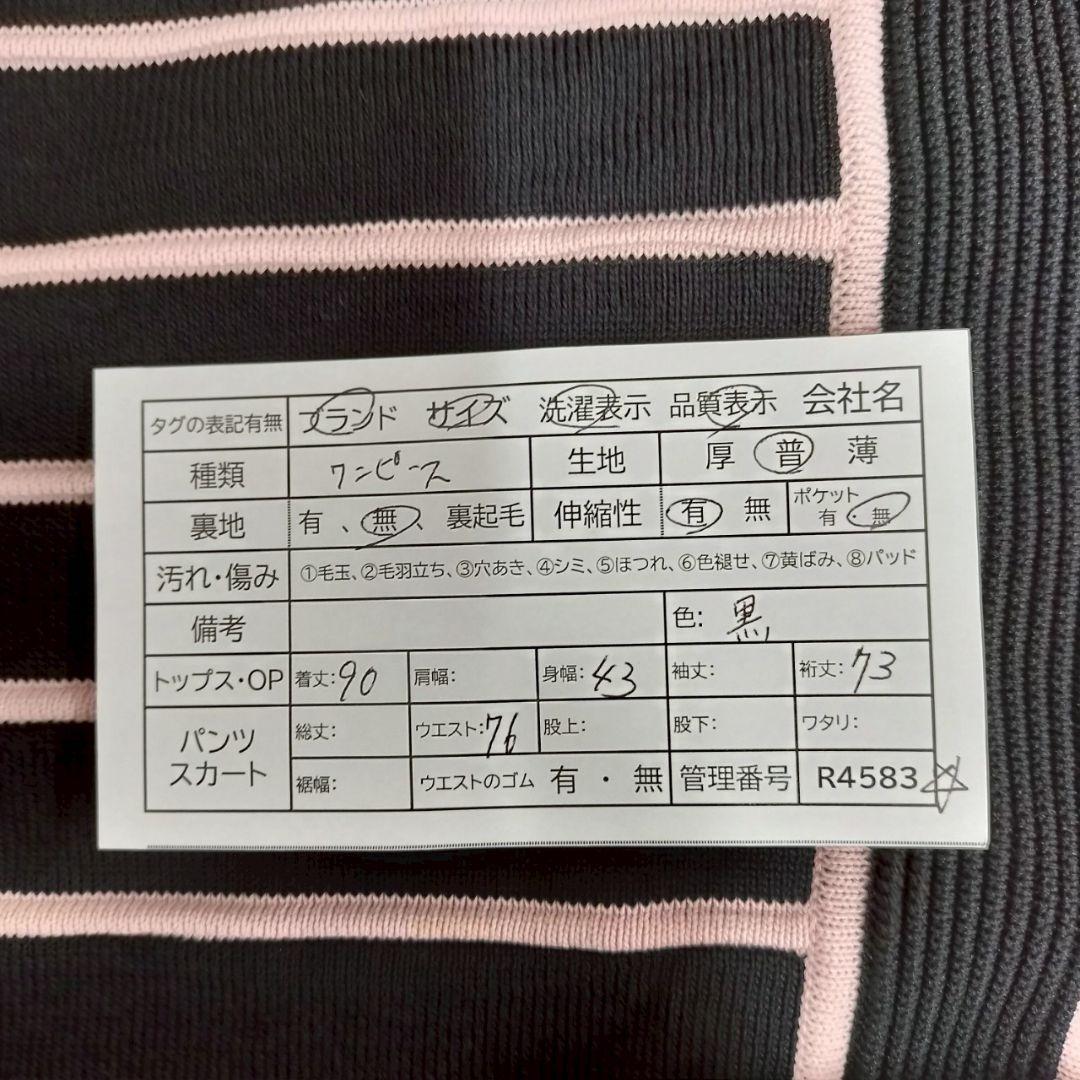 タグの表記有無 ブランド サイズ 洗濯表示 品質表示 会社名
種類 ワンピース 生地 厚 普 薄
裏地 有 、無、裏起毛 伸縮性 有 無 ポケット 有・無
汚れ・傷み ①毛玉、②毛羽立ち、③穴あき、④シミ、⑤ほつれ、⑥色褪せ、⑦黄ばみ、⑧パッド
備考 色: 黒
トップス・OP 着丈:90 肩幅: 身幅:43 袖丈: 裄丈:73
パンツ スカート 総丈: ウエスト:76 股上: 股下: ワタリ:
裾幅: ウエストのゴム 有・無 管理番号 R4583